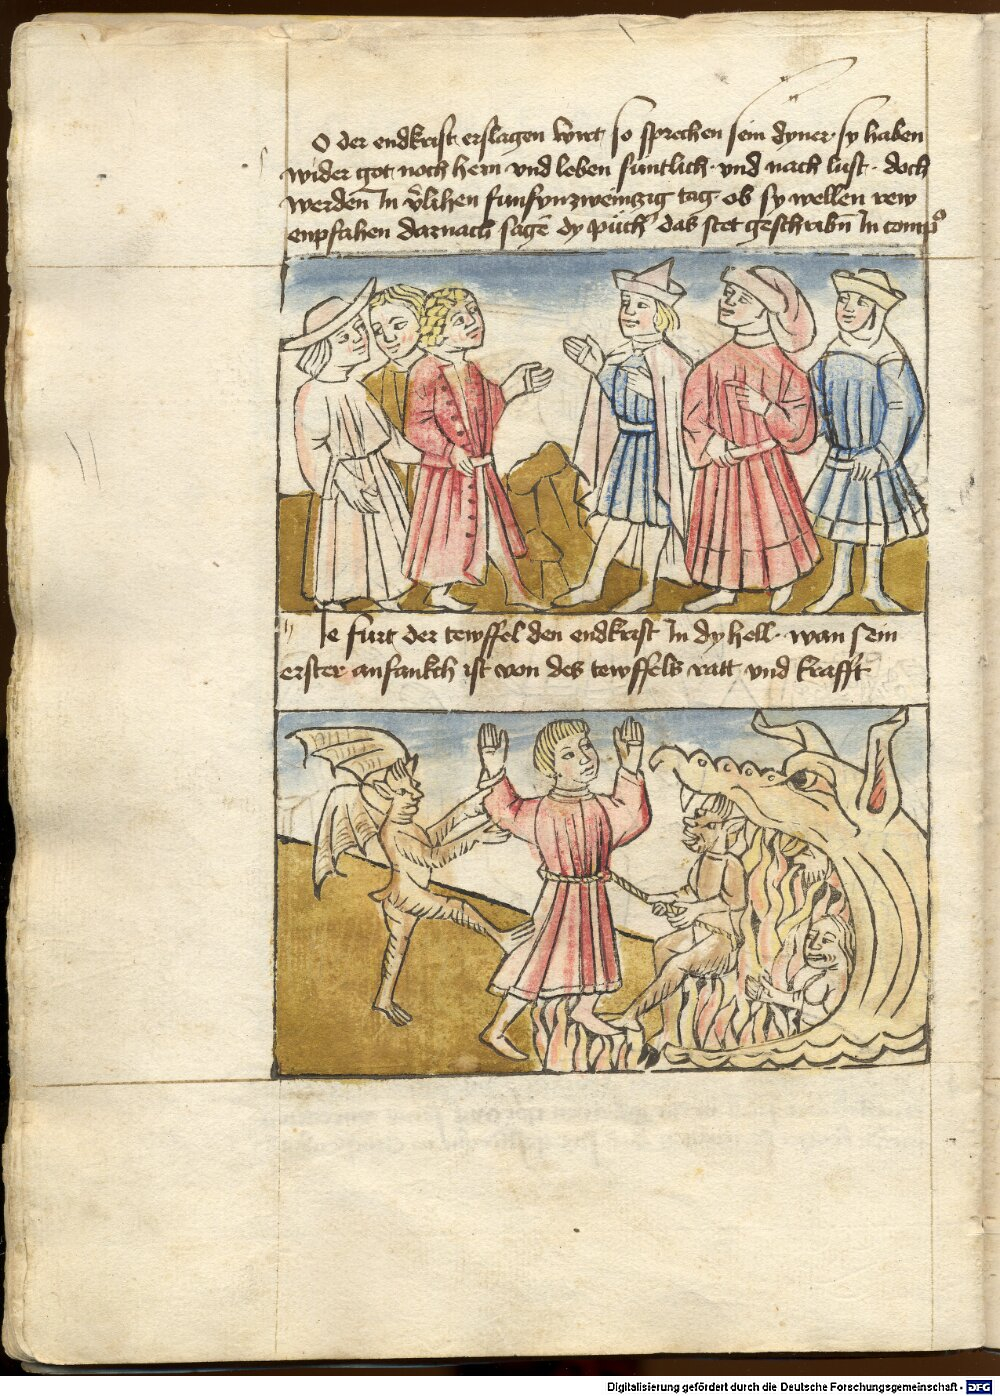 O der endkrist erslagen wirt so sprechen sein dyner · sy haben
wider got noch hern · und leben suntlich · und nach lust · doch
werden In v̈lihen funfundzweinczig tag · ob sy wellen rew
enpfahen darnach sagē dy püch das stet geschribn̄ In comp
Ie furt der tewffel den endkrist In dy hell · wan sein
erster anfankch ist von des tewffels ratt und krafft
Digitalisierung gefördert durch die Deutsche Forschungsgemeinschaft - DFG